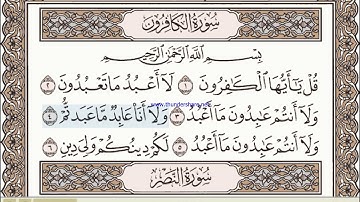 سُورَةُ الْكَافِرُونَ
بِسْمِ اللَّهِ الرَّحْمَٰنِ الرَّحِيمِ
قُلْ يَٰٓأَيُّهَا ٱلْكَٰفِرُونَ ١ لَآ أَعْبُدُ مَا تَعْبُدُونَ ٢
وَلَآ أَنتُمْ عَٰبِدُونَ مَآ أَعْبُدُ ٣ وَلَآ أَنَا۠ عَابِدٌ مَّا عَبَدتُّمْ ٤
www.thundershare.net
وَلَآ أَنتُمْ عَٰبِدُونَ مَآ أَعْبُدُ ٥ لَكُمْ دِينُكُمْ وَلِىَ دِينِ ٦
سُورَةُ النَّصْرِ